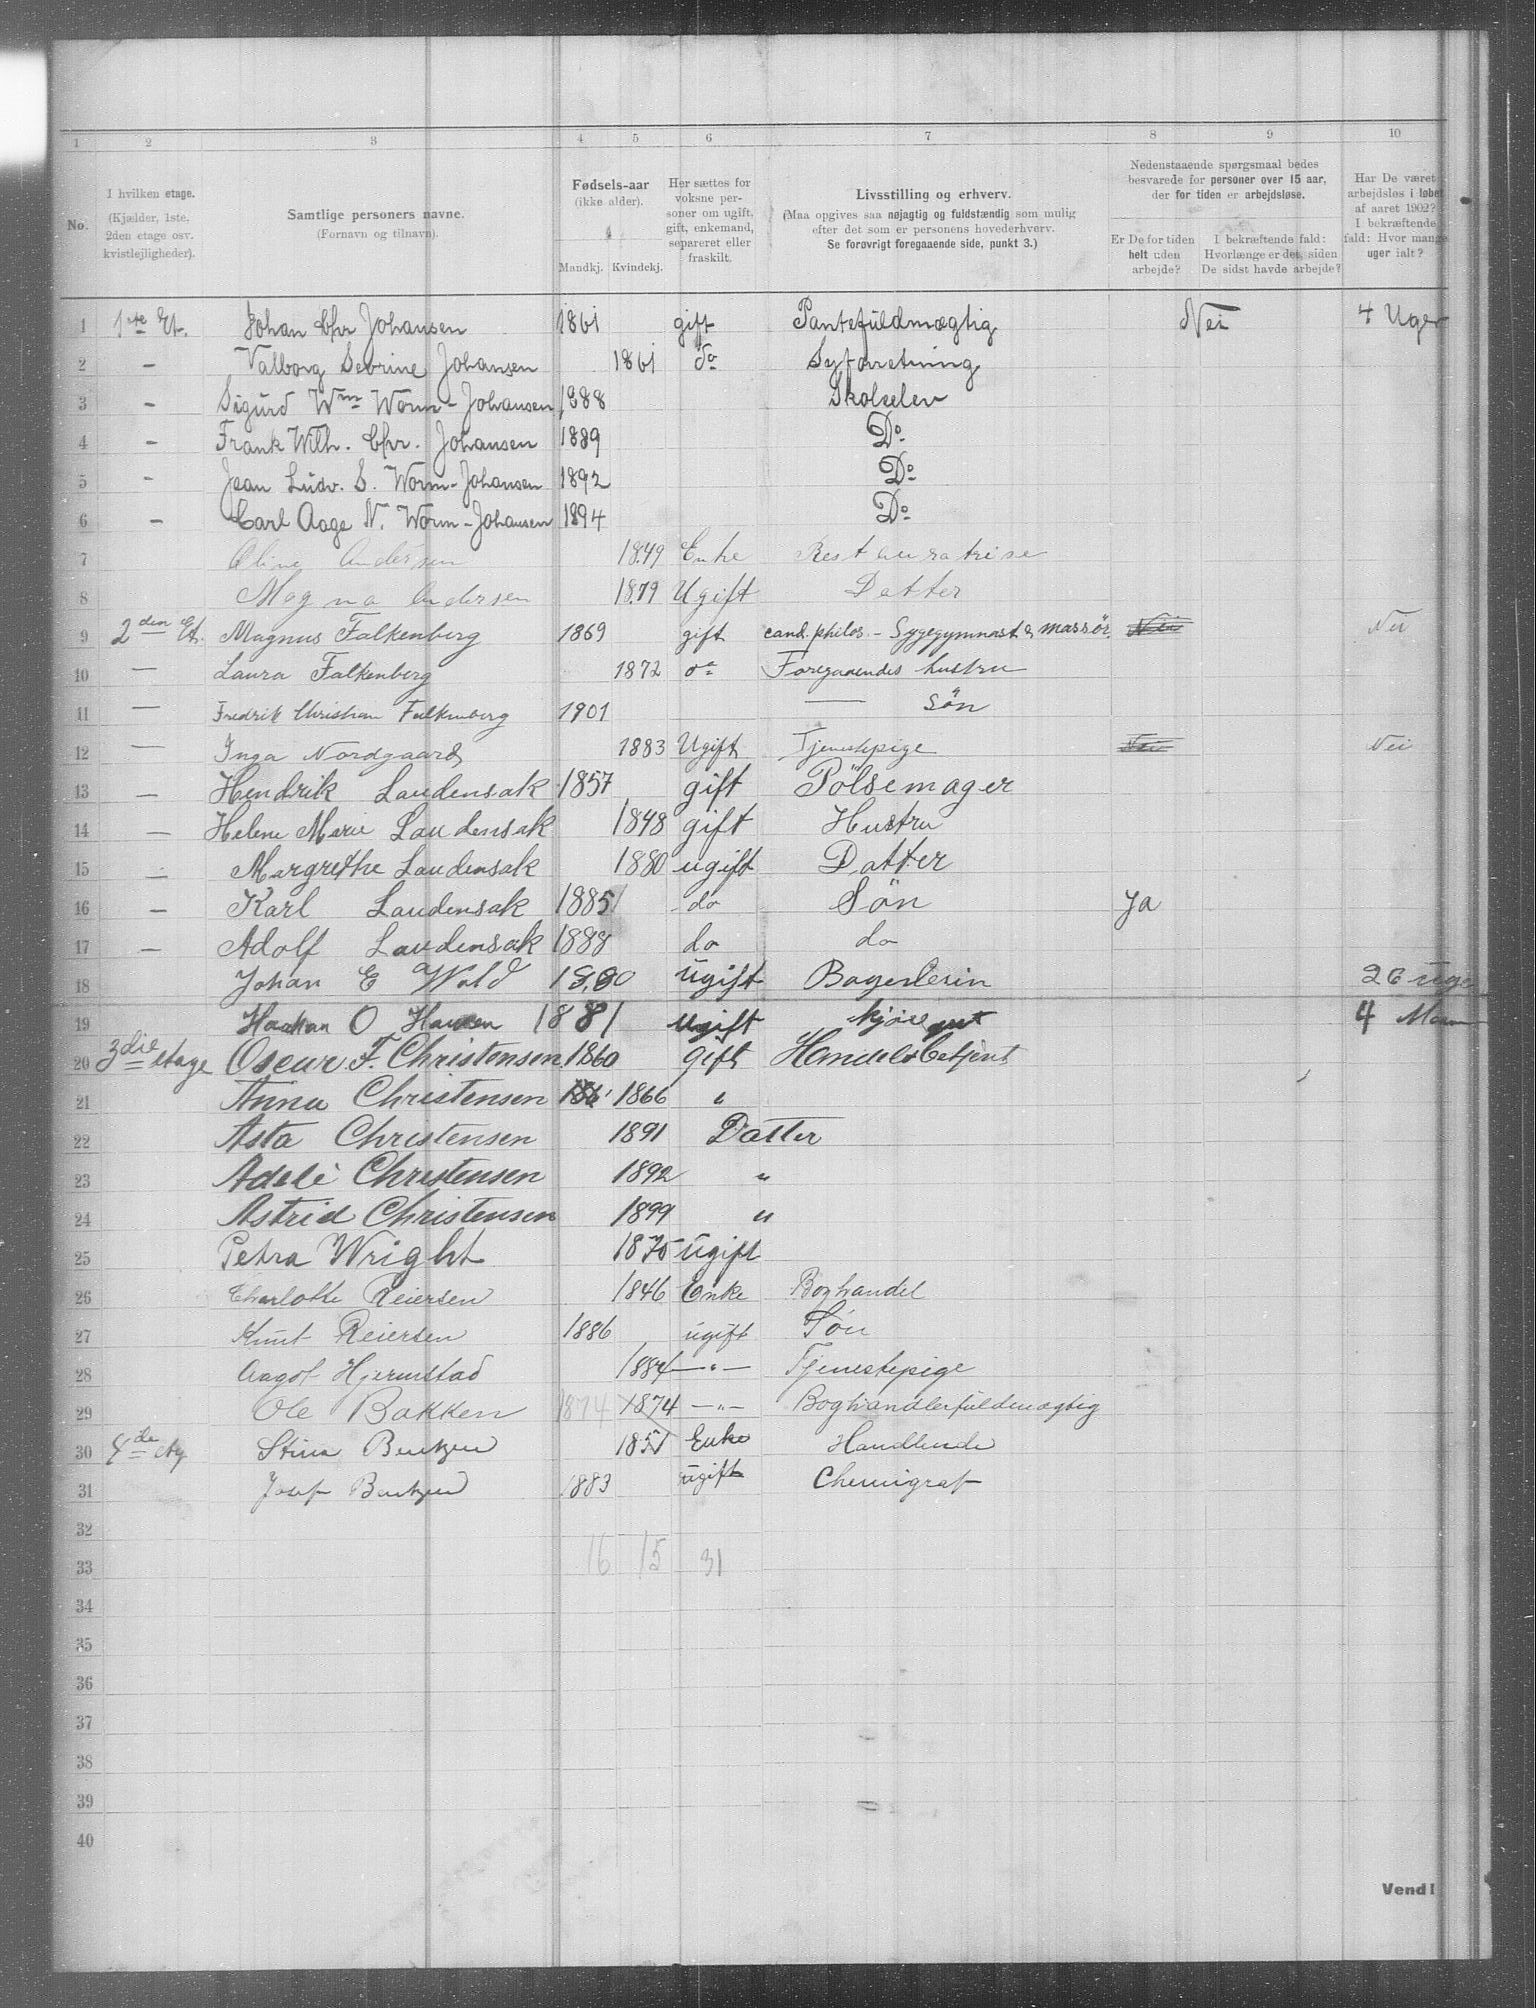 1 2 3 4 5 6 7 8 9 10
No.
I hvilken etage.
(Kjælder, 1ste,
2den etage osv.
kvistlejligheder).
Samtlige personers navne.
(Fornavn og tilnavn).
Fødsels-aar
(ikke alder).
Mandkj. Kvindekj.
Her sættes for
voksne per-
soner om ugift,
gift, enkemand,
separeret eller
fraskilt.
Livsstilling og erhverv.
(Maa opgives saa nøjagtig og fuldstændig som mulig
efter det som er personens hovederhverv.
Se forøvrigt foregaaende side, punkt 3.)
Nedenstaaende spørgsmaal bedes
besvarede for personer over 15 aar,
der for tiden er arbejdsløse.
Er De for tiden
helt uden
arbejde?
I bekræftende fald:
Hvorlænge er det, siden
De sidst havde arbejde?
Har De været
arbejdsløs i løbet
af aaret 1902?
I bekræftende
fald: Hvor mange
uger ialt?
1 1ste Et. Johan Chr Johansen 1861 gift Pantefuldmægtig Nei 4 Uger
2 – Valborg Sebrine Johansen 1861 do Syforretning
3 – Sigurd Wm Worm-Johansen 1888 Skolelev
4 – Frank Wilh. Chr. Johansen 1889 Do
5 – Jean Ludv. S. Worm-Johansen 1892 Do
6 – Carl Aage N. Worm-Johansen 1894 Do
7 Oline Andersen 1849 Enke Restauratrise
8 Magna Andersen 1879 Ugift Datter
9 2den Et. Magnus Falkenberg 1869 gift cand. philos. – Sygegymnast & massør. Nei Nei
10 — Laura Falkenberg 1872 do Foregaaendes hustru
11 — Fredrik Christian Falkenberg 1901 — Søn
12 — Inga Nordgaard 1883 Ugift Tjenestepige Nei Nei
13 – Hendrik Laudensak 1857 gift Pölsemager
14 – Helene Marie Laudensak 1848 gift Hustru
15 – Margrethe Laudensak 1880 ugift Datter
16 – Karl Laudensak 1885 do Sön Ja
17 – Adolf Laudensak 1888 do do
18 Johan E Wold 1880 ugift 26 uge
19 Haakan O Hansen 1881 ugift 4
20 3die etage Oscar F. Christensen 1860 gift Handelsbetjent
21 Anna Christensen 1866 "
22 Asta Christensen 1891 Datter
23 Adele Christensen 1892 "
24 Astrid Christensen 1899 "
25 Petra Wright 1875 ugift
26 Charlotte Reiersen 1846 Enke Boghandel
27 Knut Reiersen 1886 ugift Søn
28 Aagot Hjermstad 1884 —"— Tjenestepige
29 Ole Bakken 1874 1874 —"— Boghandlerfuldmægtig
30 4de etg Stina Bentzen 1851 Enke Handlende
31 Josef Bentzen 1883 ugift Chemigraf
32
33 16 15 31
34
35
36
37
38
39
40
Vend!